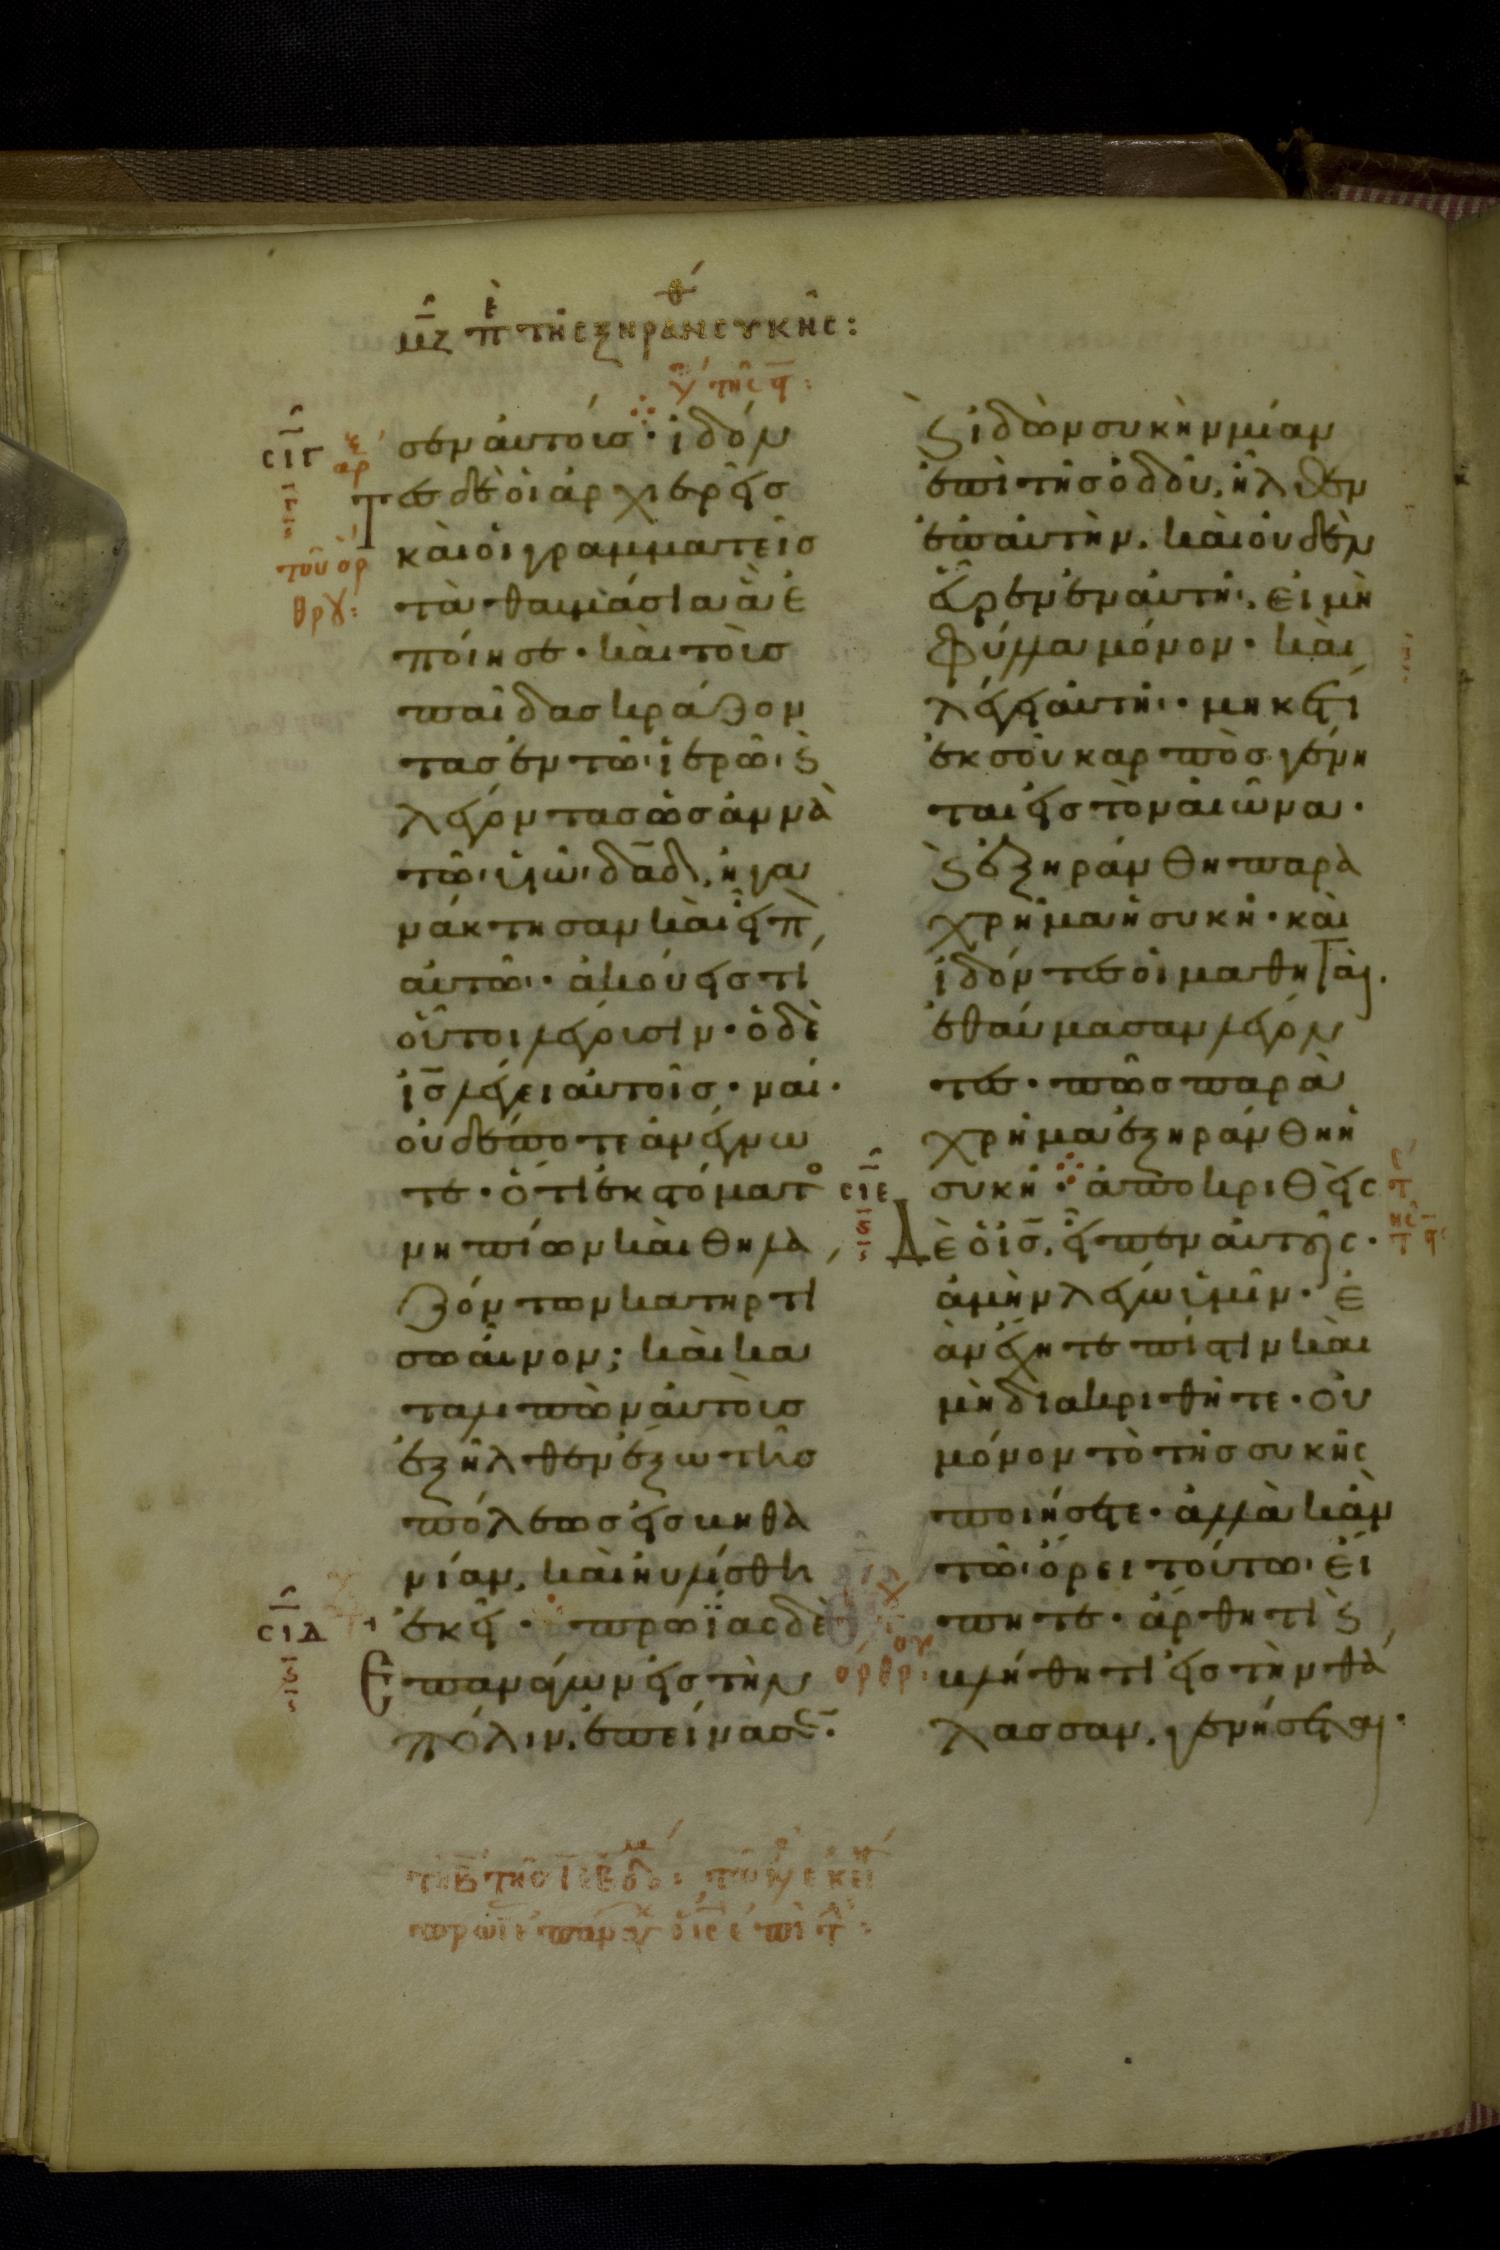 μζ πε της ξηρανθ συκῆς:
σεν ἀυτοῖς· ἰδόν
τες δὲ ὁι ἀρχιερεῖς
κὰι ὁι γραμματεῖς
τὰ θαυμάσια ἃ ἐ
ποίησε· κὰι τοὺς
παῖδας κράζον
τας ἐν τῶι ἱερῶι, ϗ
λέγοντας ὡσάννὰ
τῶι υἱῶι δᾱδ, ἠγα
νάκτησαν κὰι εἶπ
αὐτῶι· ἀκούεις τί
οὗτοι λέγουσιν· ὁ δὲ
ἰς̄ λέγει ἀυτοῖς· ναί·
οὐδέποτε ἀνέγνω
τε· ὅτι ἐκ στόματο
νηπίων κὰι θηλα
ζόντων κατηρτί
σω αἶνον; κὰι κα
ταλιπὼν ἀυτοὺς
ἐξῆλθεν ἔξω τῆς
πόλεως εἰς βηθα
νίαν, κὰι ηὐλίσθη
ἐκεῖ· πρωΐας δὲ
Ἐπανάγων εἰς τὴν
πόλιν, ἐπείνασε·
ϗ ἰδὼν συκὴν μίαν
ἐπὶ τῆς ὁδοῦ, ἦλθεν
ἐπ ἀυτὴν, κὰι οὐδὲν
εὗρεν ἐν ἀυτῆι, εἰ μὴ
φύλλα μόνον· κὰι
λέγει ἀυτῆι· μηκέτι
ἐκ σοῦ καρπὸς γένη
ται εἰς τὸν αἰῶνα·
ϗ ἐξηράνθη παρὰ
χρῆμα ἡ συκῆ· κὰι
ἰδόντες ὁι μαθηταὶ,
ἐθαύμασαν λέγον
τες· πῶς παρὰ
χρῆμα ἐξηράνθη ἡ
συκῆ· ἀποκριθεὶς
Δὲ ὁ ἰς̄, εἶπεν ἀυτοῖς·
ἀμὴν λέγω ὑμῖν· ἐ
ὰν ἔχητε πίστιν κὰι
μὴ διακριθῆτε· οὐ
μόνον τὸ τῆς συκῆς
ποιήσετε· ἀλλὰ κἂν
τῶι ὄρει τούτωι εἴ
πητε· ἄρθητι ϗ
βλήθητι εἰς τὴν θά
λασσαν, γενήσεται·
σιγ
σιδ
σιε